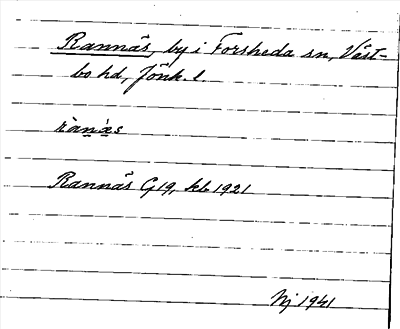 Rannäs, by i Forsheda sn, Väst-
bo hd, Jönk. l.
rànæ̀s
Rannäs G 19, kb 1921
Nj 1941